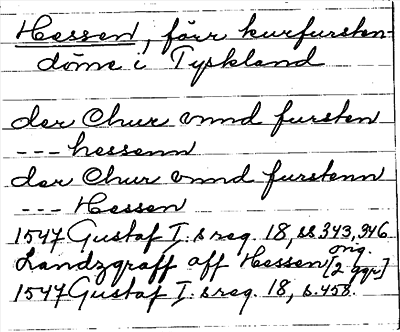 Hessen, förr kurfursten-
döme i Tyskland
der Chur vnnd fursten
--- hessenn
der Chur vnnd furstenn
--- Hessen
1547 Gustaf I:s reg. 18, ss 343, 346
Landzgraff aff Hessen [orig. 2 ggr]
1547 Gustaf I:s reg. 18, s. 458.